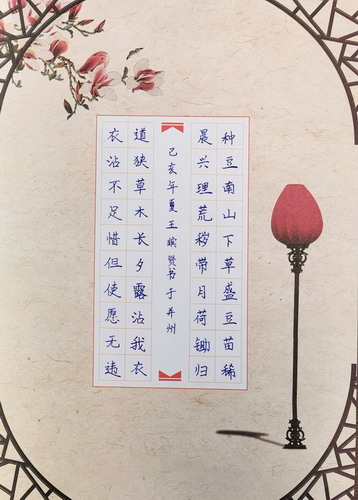 种豆南山下草盛豆苗稀
晨兴理荒秽带月荷锄归
己亥年夏王缤贤书于并州
道狭草木长夕露沾我衣
衣沾不足惜但使愿无违